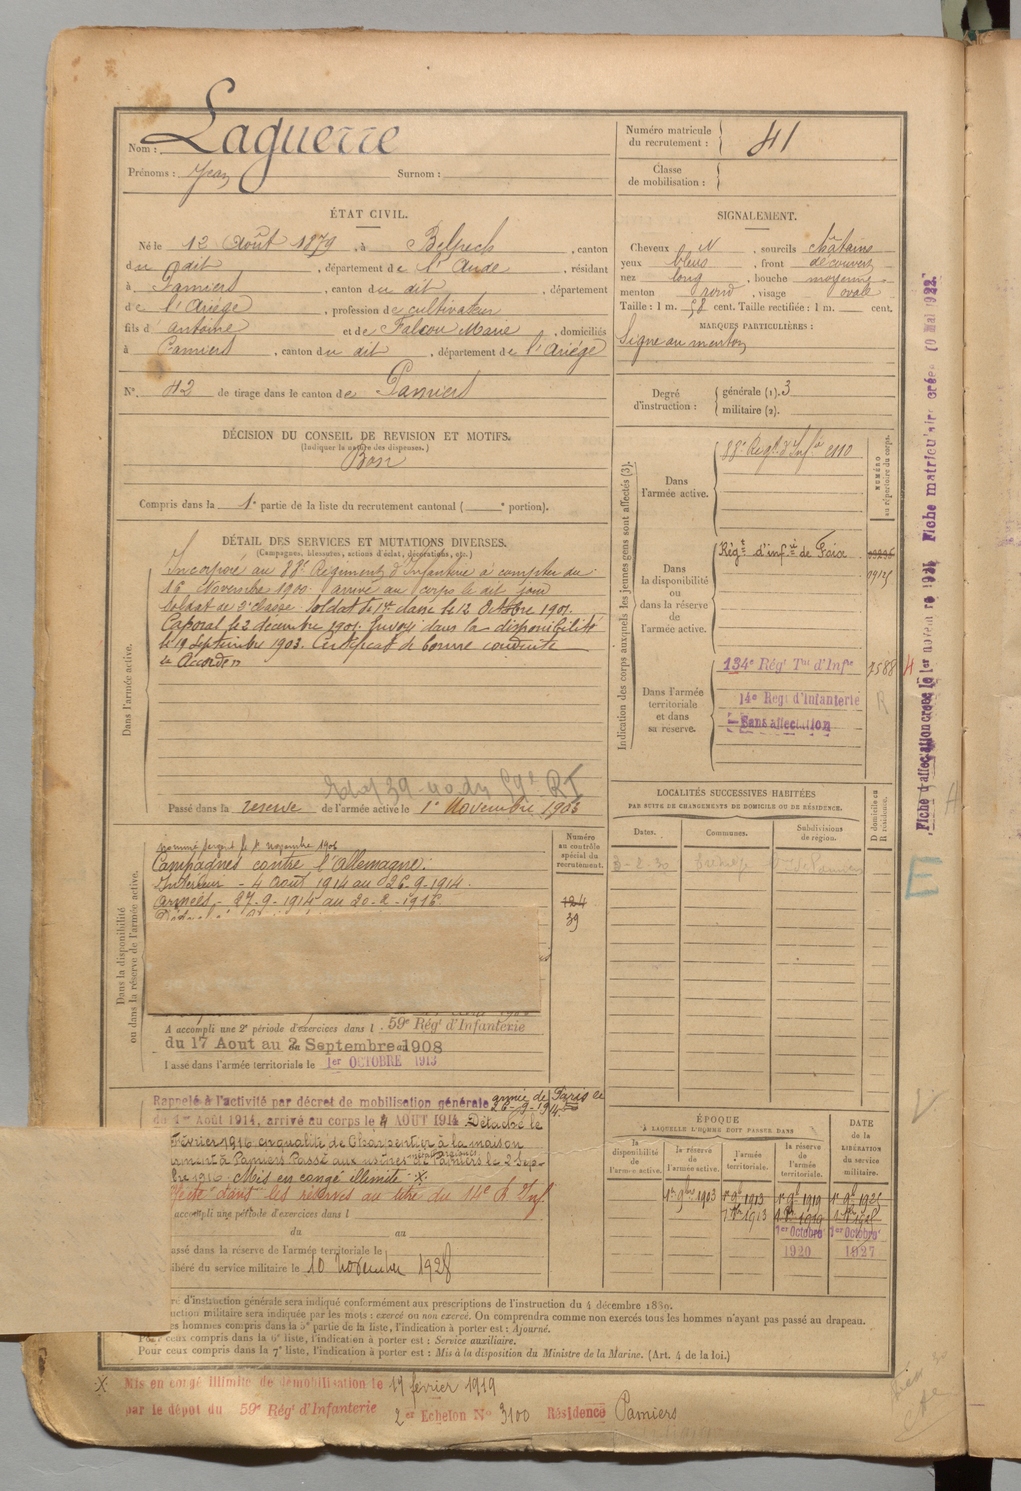 Nom : Laguerre
Prénoms : Jean Surnom :
Numéro matricule du recrutement : 41
Classe de mobilisation :
ÉTAT CIVIL.
Né le 12 Août 1879, à Belpech, canton
du dit, département de l'Aude, résidant
à Pamiers, canton du dit, département
de l'Ariège, profession de cultivateur
fils d'Antoine et de Falcou Marie, domiciliés
à Pamiers, canton du dit, département de l'Ariège
N°. 42 de tirage dans le canton de Pamiers
SIGNALEMENT.
Cheveux N, sourcils châtains
yeux bleus, front découvert
nez long, bouche moyenne
menton rond, visage ovale
Taille : 1 m. 58 cent. Taille rectifiée : 1 m. cent.
MARQUES PARTICULIÈRES :
Signe au menton
Degré d'instruction : générale (1). 3
militaire (2).
DÉCISION DU CONSEIL DE REVISION ET MOTIFS.
(Indiquer la nature des dispenses.)
Bon
Compris dans la 1e partie de la liste du recrutement cantonal ( portion).
DÉTAIL DES SERVICES ET MUTATIONS DIVERSES.
(Campagnes, blessures, actions d'éclat, décorations, etc.)
Dans l'armée active.
Incorporé au 88e Régiment d'Infanterie à compter du
16 Novembre 1900 arrivé au corps le dit jour
Soldat de 2e classe. Soldat de 1re classe le 12 Octobre 1901.
Caporal le 2 décembre 1901. Envoyé dans la disponibilité
le 19 Septembre 1903. Certificat de bonne conduite
Accordé
59e RI
Passé dans la réserve de l'armée active le 1er Novembre 1903
Indication des corps auxquels les jeunes gens sont affectés (3).
NUMÉRO au répertoire du corps.
Dans l'armée active.
88e Régt. d'Infie 2110
Dans la disponibilité ou dans la réserve de l'armée active.
Régt d'infie de Foix
Dans l'armée territoriale et dans sa réserve.
134e Régt Tal d'Infie
14e Régt d'Infanterie
Sans affectation
LOCALITÉS SUCCESSIVES HABITÉES
PAR SUITE DE CHANGEMENTS DE DOMICILE OU DE RÉSIDENCE.
Dates. Communes. Subdivisions de région.
D domicile ou R résidence.
Dans la disponibilité ou dans la réserve de l'armée active.
Numéro au contrôle spécial du recrutement.
124
39
nommé sergent le 1er novembre 1906
Campagnes contre l'Allemagne :
Intérieur - 4 Août 1914 au 26-9-1914.
Armées, - 27-9-1914 au 20-2-1916
A accompli une 2e période d'exercices dans l 59e Régt d'Infanterie
du 17 Aout au 2 Septembre 1908
Passé dans l'armée territoriale le 1er OCTOBRE 1913
Rappelé à l'activité par décret de mobilisation générale
1er Août 1914, arrivé au corps le 4 AOUT 1914 Détaché le
Février 1916 en qualité de Charpentier à la maison
à Pamiers Passé aux usines de Pamiers le 2 Sep-
bre 1916 Mis en congé illimité X.
dans les réserves au titre du 14e d'Inf
accompli une période d'exercices dans l
du au
assé dans la réserve de l'armée territoriale le
ibéré du service militaire le 10 novembre 1928
ÉPOQUE
À LAQUELLE L'HOMME DOIT PASSER DANS
la disponibilité de l'armée active.
la réserve de l'armée active.
l'armée territoriale.
la réserve de l'armée territoriale.
DATE de la LIBÉRATION du service militaire.
1er 9bre 1903
1er Octobre 1920
1er Octobre 1927
d'instruction générale sera indiqué conformément aux prescriptions de l'instruction du 4 décembre 1889.
uction militaire sera indiquée par les mots : exercé ou non exercé. On comprendra comme non exercés tous les hommes n'ayant pas passé au drapeau.
es hommes compris dans la 5e partie de la liste, l'indication à porter est : Ajourné.
Pour ceux compris dans la 6e liste, l'indication à porter est : Service auxiliaire.
Pour ceux compris dans la 7e liste, l'indication à porter est : Mis à la disposition du Ministre de la Marine. (Art. 4 de la loi.)
X Mis en congé illimité de démobilisation le 17 février 1919
par le dépôt du 59e Régt d'Infanterie 2e Echelon No 3100 Résidence Pamiers